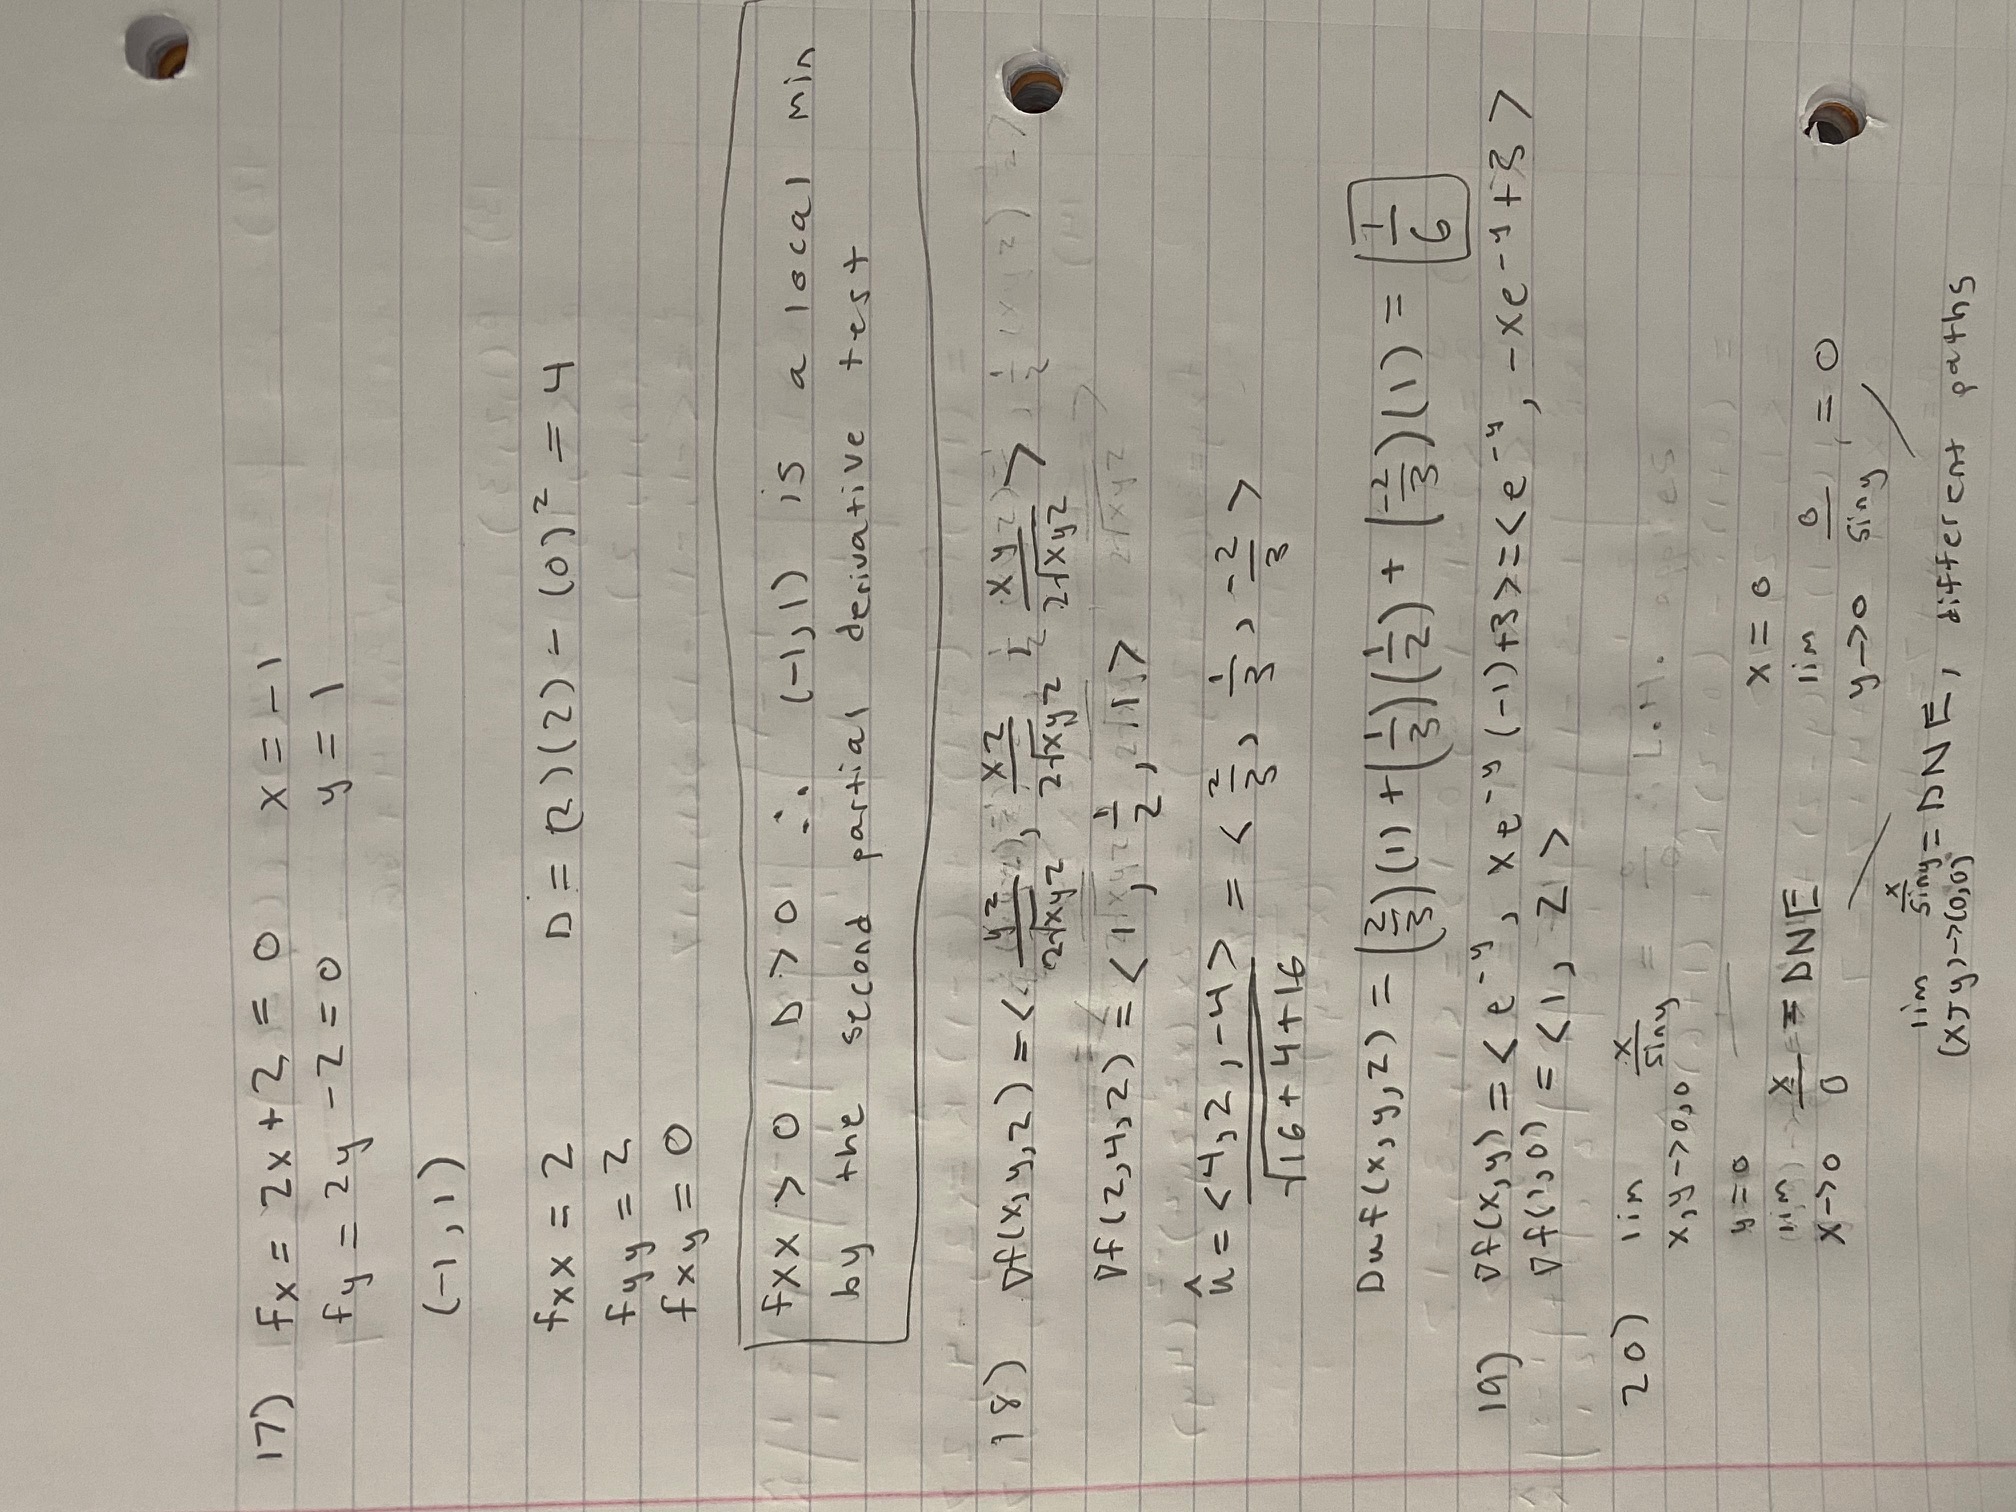 17) fx = 2x + 2 = 0 x = -1
fy = 2y - 2 = 0 y = 1
(-1, 1)
fxx = 2 D = (2)(2) - (0)² = 4
fyy = 2
fxy = 0
fxx > 0 D > 0 ∴ (-1, 1) is a local min
by the second partial derivative test
18) ∇f(x, y, z) = < yz/2√xyz, xz/2√xyz, xy/2√xyz >
∇f(2, 4, 2) = < 1, 1/2, 1 >
û = <4, 2, -4>/√16 + 4 + 16 = < 2/3, 1/3, -2/3 >
Duf(x, y, z) = (2/3)(1) + (1/3)(1/2) + (-2/3)(1) = 1/6
19) ∇f(x, y) = < e^-y, xe^-y (-1) + 3 > = < e^-y, -xe^-y + 3 >
∇f(1, 0) = < 1, 2 >
20) lim x,y->0,0 x/siny
y = 0 x = 0
lim x->0 x/0 = DNE lim y->0 0/siny = 0
lim (x,y)->(0,0) x/siny = DNE, different paths